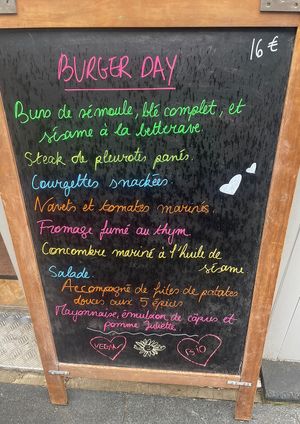 16 €
BURGER DAY
Buns de sémoule, blé complet, et
sésame à la betterave
Steak de pleurotes panés.
Courgettes snackées.
Navets et tomates marinés.
Fromage fumé au thym.
Concombre mariné à l'huile de
sésame
Salade.
Accompagné de frites de patates
douces aux 5 épices
Mayonnaise, émulsion de câpres et
pomme Juliette
VEGAN